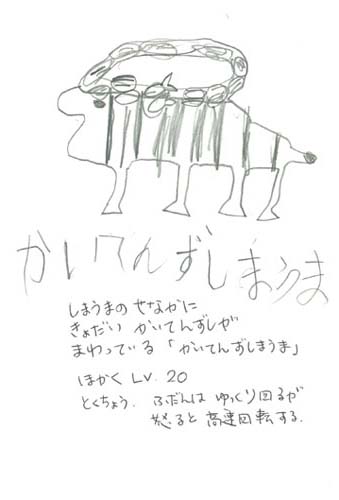 かいてんずしまうま
しまうまの せなかに
きょだい かいてんずしが
まわっている「かいてんずしまうま」
ほかく Lv. 20
とくちょう. ふだんは ゆっくり回るが
怒ると 高速回転する.